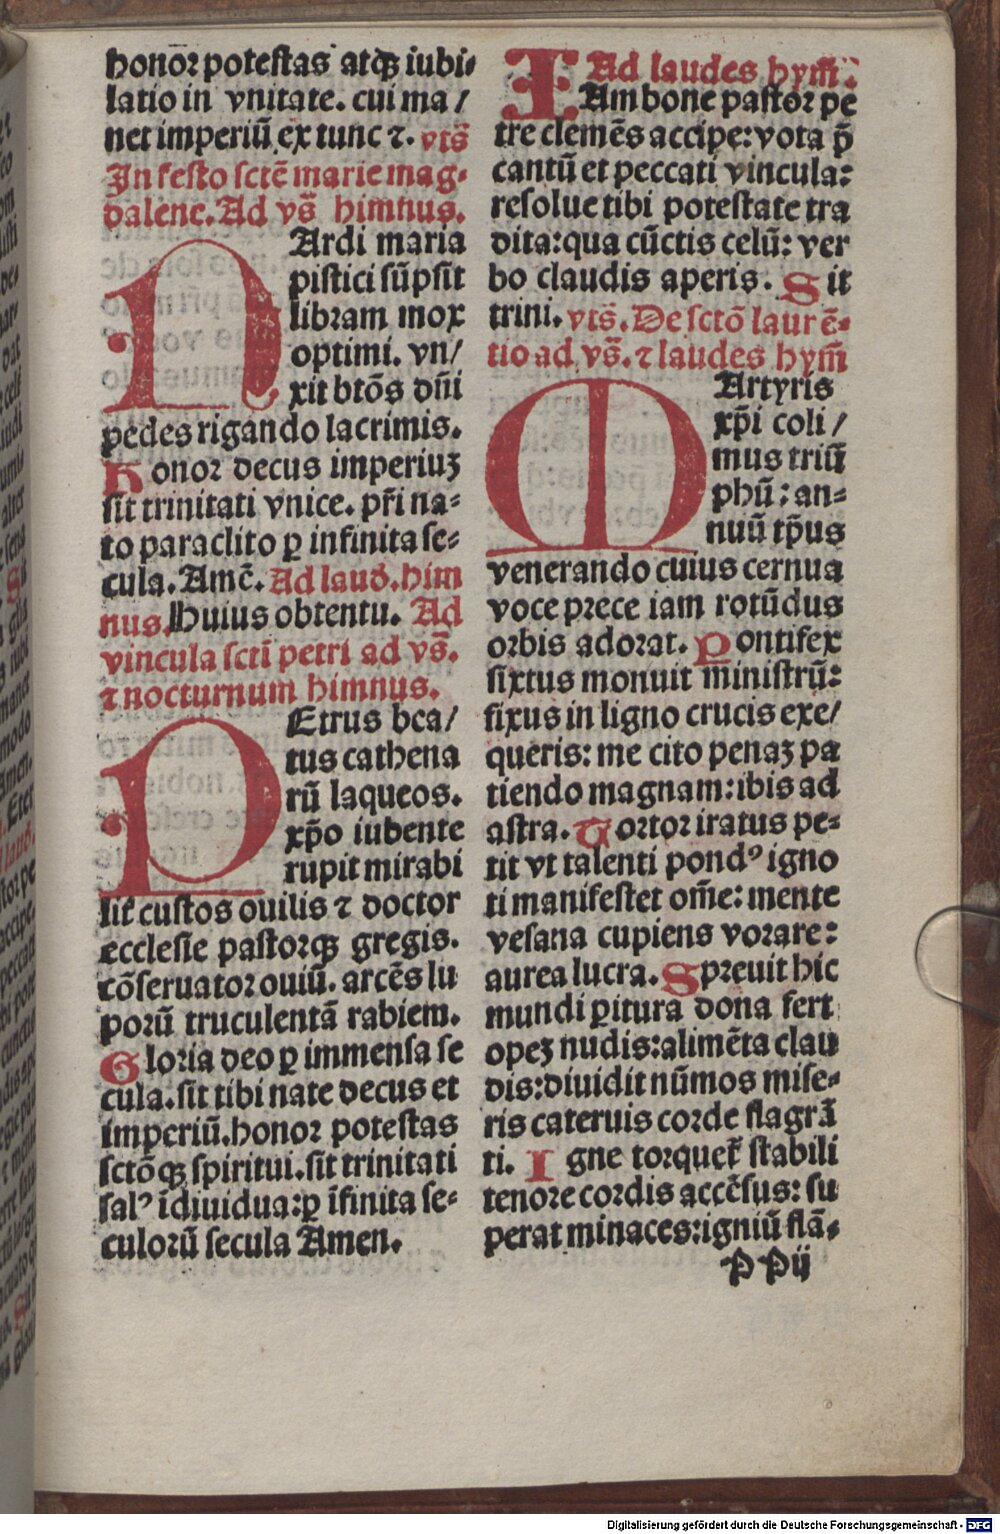 honoꝛ poteſtas atqꝫ iubi⸗
latio in vnitate. cui ma /
net imperiū ex tunc ⁊. vtš
In feſto ſctē marie mag⸗
dalene. Ad vš himnus.
NArdi maria
piſtici ſūpſit
libꝛam mox
optimi. vn/
xit btōs dñi
pedes rigando lacrimis.
Honoꝛ decus imperiuꝫ
ſit trinitati vnice. pr̄i na⸗
to paraclito ꝑ infinita ſe⸗
cula. Amē. Ad laud̄. him
nus. Huius obtentu. Ad
vincula ſcti petri ad vš.
⁊ nocturnum himnus.
PEtrus bea/
tus cathena
rū laqueos.
xp̄o iubente
rupit mirabi
lit̄ cuſtos ouilis ⁊ doctor
eccleſie paſtoꝛqꝫ gregis.
cōſeruatoꝛ ouiū. arcēs lu
poꝛū truculentā rabiem.
Gloria deo ꝑ immenſa ſe
cula. ſit tibi nate decus et
imperiū. honoꝛ poteſtas
ſctōqꝫ ſpiritui. ſit trinitati
ſalꝰ īdiuidua: ꝑ īfinita ſe⸗
culoꝛū ſecula Amen.
Ad laudes hym̄:
IAm bone paſtoꝛ pe
tre clemēs accipe: vota p̄
cantū et peccati vincula:
reſolue tibi poteſtate tra
dita: qua cūctis celū: ver
bo claudis aperis. Sit
trini. vtš. De ſctō laurē⸗
tio ad vš. ⁊ laudes hym̄
MArtyris
xp̄i coli /
mus triū
phū: an⸗
nuū tp̄us
venerando cuius cernua
voce pꝛece iam rotūdus
oꝛbis adoꝛat. Pontifex
ſixtus monuit miniſtrū:
fixus in ligno crucis exe/
queris: me cito penaꝫ pa
tiendo magnam: ibis ad
aſtra. Toꝛtoꝛ iratus pe⸗
tit vt talenti pondꝰ igno
ti manifeſtet om̄e: mente
veſana cupiens voꝛare:
aurea lucra. Spꝛeuit hic
mundi ꝑitura dona fert
opeꝫ nudis: alimēta clau
dis: diuidit nūmos miſe⸗
ris cateruis coꝛde flagrā
ti. Igne toꝛquet̄ ſtabili
tenoꝛe coꝛdis accēſus: ſu
perat minaces: igniū flā⸗
P Pij
Digitalisierung gefördert durch die Deutsche Forschungsgemeinschaft - DFG